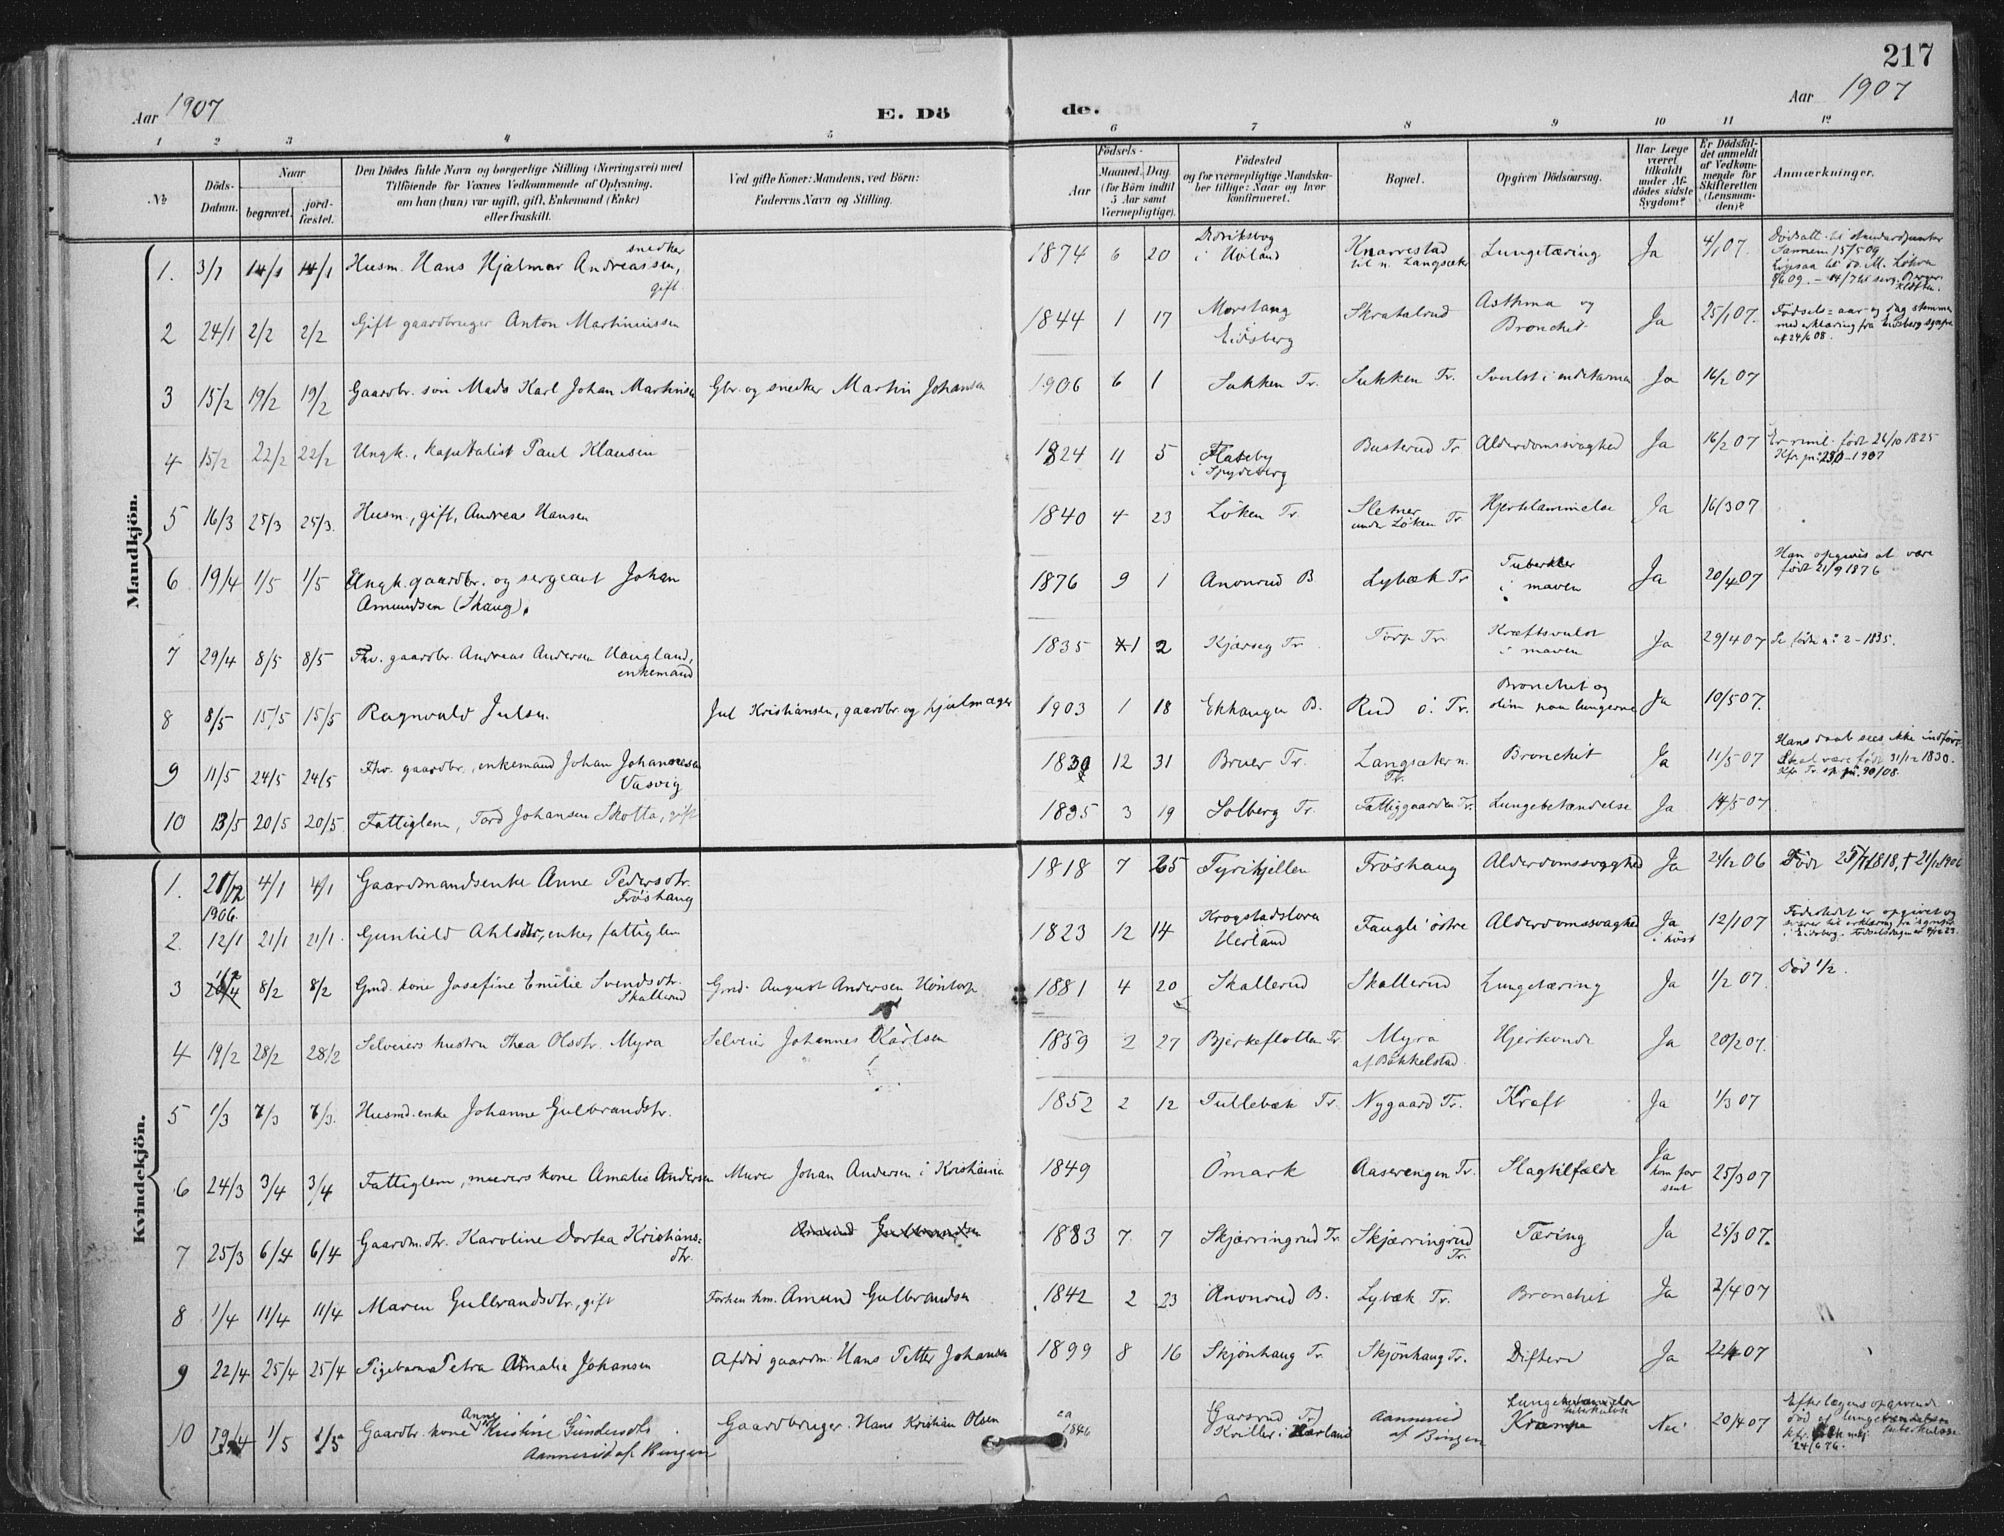 217
Aar 1907
E. Döde.
Aar 1907
1 2 3 4 5 6 7 8 9 10 11 12
№
Döds-Datum.
Naar
begravet.
jordfæstet.
Den Dödes fulde Navn og borgerlige Stilling (Næringsvei) med
Tilföiende for Voxnes Vedkommende af Oplysning,
om han (hun) var ugift, gift, Enkemand (Enke)
eller fraskilt.
Ved gifte Koner: Mandens, ved Börn:
Faderens Navn og Stilling.
Födsels-
Aar
Maaned. Dag.
(for Börn indtil
5 Aar samt
Værnepligtige).
Födested
og for værnepligtige Mandskaber tillige: Naar og hvor
konfirmeret.
Bopæl.
Opgiven Dödsaarsag.
Har Læge
været
tilkaldt
under Afdödes sidste
Sygdom?
Er Dödsfaldet anmeldt
af Vedkommende for
Skifteretten
(Lensmanden)?
Anmærkninger.
Mandkjön.
1. 3/1 14/1 14/1 Husm. Hans Hjalmar Andreassen, snedker gift 1874 6 20 Didriksbog i Höland Knarrestad til n. Langsæter Lungetæring Ja 4/1 07.
2 24/1 2/2 2/2 Gift gaardbruger Anton Martiniussen 1844 1 17 Morstang Eidsberg Skratalrud Asthma og Bronchit Ja 25/1 07. Födsels=aar og dag stemmer med erklæring fra Eidsberg sgnpr. af 24/6 08.
3 15/2 19/2 19/2 Gaardbr. sön Mads Karl Johan Martinsen Gbr. og snedker Martin Johansen 1906 6 1 Sukken Tr. Sukken Tr. Svulst i endetarmen Ja 16/2 07
4 15/2 22/2 22/2 Ungk., kapitalist Paul Klausen 1824 11 5 Flateby i Spydeberg Busterud Tr Alderdomssvaghed Ja 16/2 07 Er riml. födt 26/10 1825
5 16/3 25/3 25/3. Husm., gift, Andreas Hansen 1840 4 23 Löken Tr. Sletner under Löken Tr Hjertelammelse Ja 16/3 07
6 19/4 1/5 1/5 Ungk. gaardbr. og sergeant Johan Amundsen (Skaug). 1876 9 1 Anonrud B Lybæk Tr Tuberkler i maven Ja 20/4 07 Han opgives at være födt 21/9 1876
7 29/4 8/5 8/5 Fhv. gaardbr. Andreas Andersen Haugland, enkemand 1835 1 2 Kjærseg Tr Torp Tr. Kræftsvulst i maven Ja 29/4 07 Se födte n: 2 - 1835.
8 8/5 15/5 15/5 Ragnvald Julsen Jul Kristiansen, gaardbr. og hjulmager 1903 1 18 Ekhaugen B. Rud ö. Tr. Bronchit og slim paa lungerne Ja 10/5 07.
9 11/5 24/5 24/5 Fhv. gaardbr., enkemand Johan Johannesen Vasvig 1830 12 31 Bruer Tr. Langsæter n. Tr. Bronchit Ja 11/5 07 Hans daab sees ikke indfört. Skal være födt 31/12 1830.
10 13/5 20/5 20/5 Fattiglem, Tord Johansen Skotta, gift 1835 3 19 Solberg Tr. Fattiggaarden Tr. Lungebetændelse Ja 14/5 07.
Kvindekjön.
1. 21/12 1906. 4/1 4/1 Gaardmandsenke Anne Pedersdtr. Fröshaug 1818 7 25 Tyrikjellen Fröshaug Alderdomssvaghed Ja 24/12 06 Födt 25/7 1818, † 21/12 1906
2. 12/1 21/1 21/1. Gunhild Ahlsdtr., enke, fattiglem 1823 12 14 Krogstadsloren Herland Fangli östre Alderdomssvaghed Ja i höst 12/1 07
3 1/2 8/2 8/2 Gmd. kone Josefine Emilie Svendsdtr. Skallerud Gmd. August Andersen Höntorp 1881 4 20 Skallerud Skallerud Lungetæring Ja 1/2 07. Död 1/2.
4 19/2 28/2 28/2 Selveiers hustru Thea Olsdtr. Myra Selveier Johannes Karlsen 1859 2 27 Bjerkeflotten Tr. Myra af Bakkelstad Hjerteonde Ja 20/2 07.
5 1/3 7/3 7/3. Husmd. enke Johanne Gulbrandsdtr. 1852 2 12 Tullebæk Tr. Nygaard Tr. Kræft Ja 1/3 07
6 24/3 3/4 3/4 Fattiglem, murers kone Amalie Andersen Murer Johan Andersen i Kristiania 1849 Ömark Aaserengen Tr. Slagtilfælde Ja kom for sent 25/3 07
7 25/3 6/4 6/4 Gaardm.dtr. Karoline Dortea Kristians=dtr. Amund Gulbrandsen 1883 7 7 Skjærringrud Tr. Skjærringrud Tr. Tæring Ja 25/3 07.
8 1/4 11/4 11/4 Maren Gulbrandsdtr., gift Forhen hm. Amund Gulbrandsen 1842 2 23 Anonrud B. Lybæk Tr. Bronchit Ja 2/4 07
9 22/4 25/4 25/4 Pigebarn Petra Amalie Johansen Afdöd gaardm. Hans Petter Johansen 1899 8 16 Skjönhaug Tr. Skjönhaug Tr. Difteri Ja 22/4 07
10 19/4 1/5 1/5 Gaardbr. kone Anne Kristine Gundersdtr. Aannerud af Bingen Gaardbruger Hans Kristian Olsen ca 1846 Garsrud Tr Kviller i Hærland Aannerud af Bingen Lungetuberkulose Krampe Nei 20/4 07 Efter lægens opgivende död af lungetuberkulose